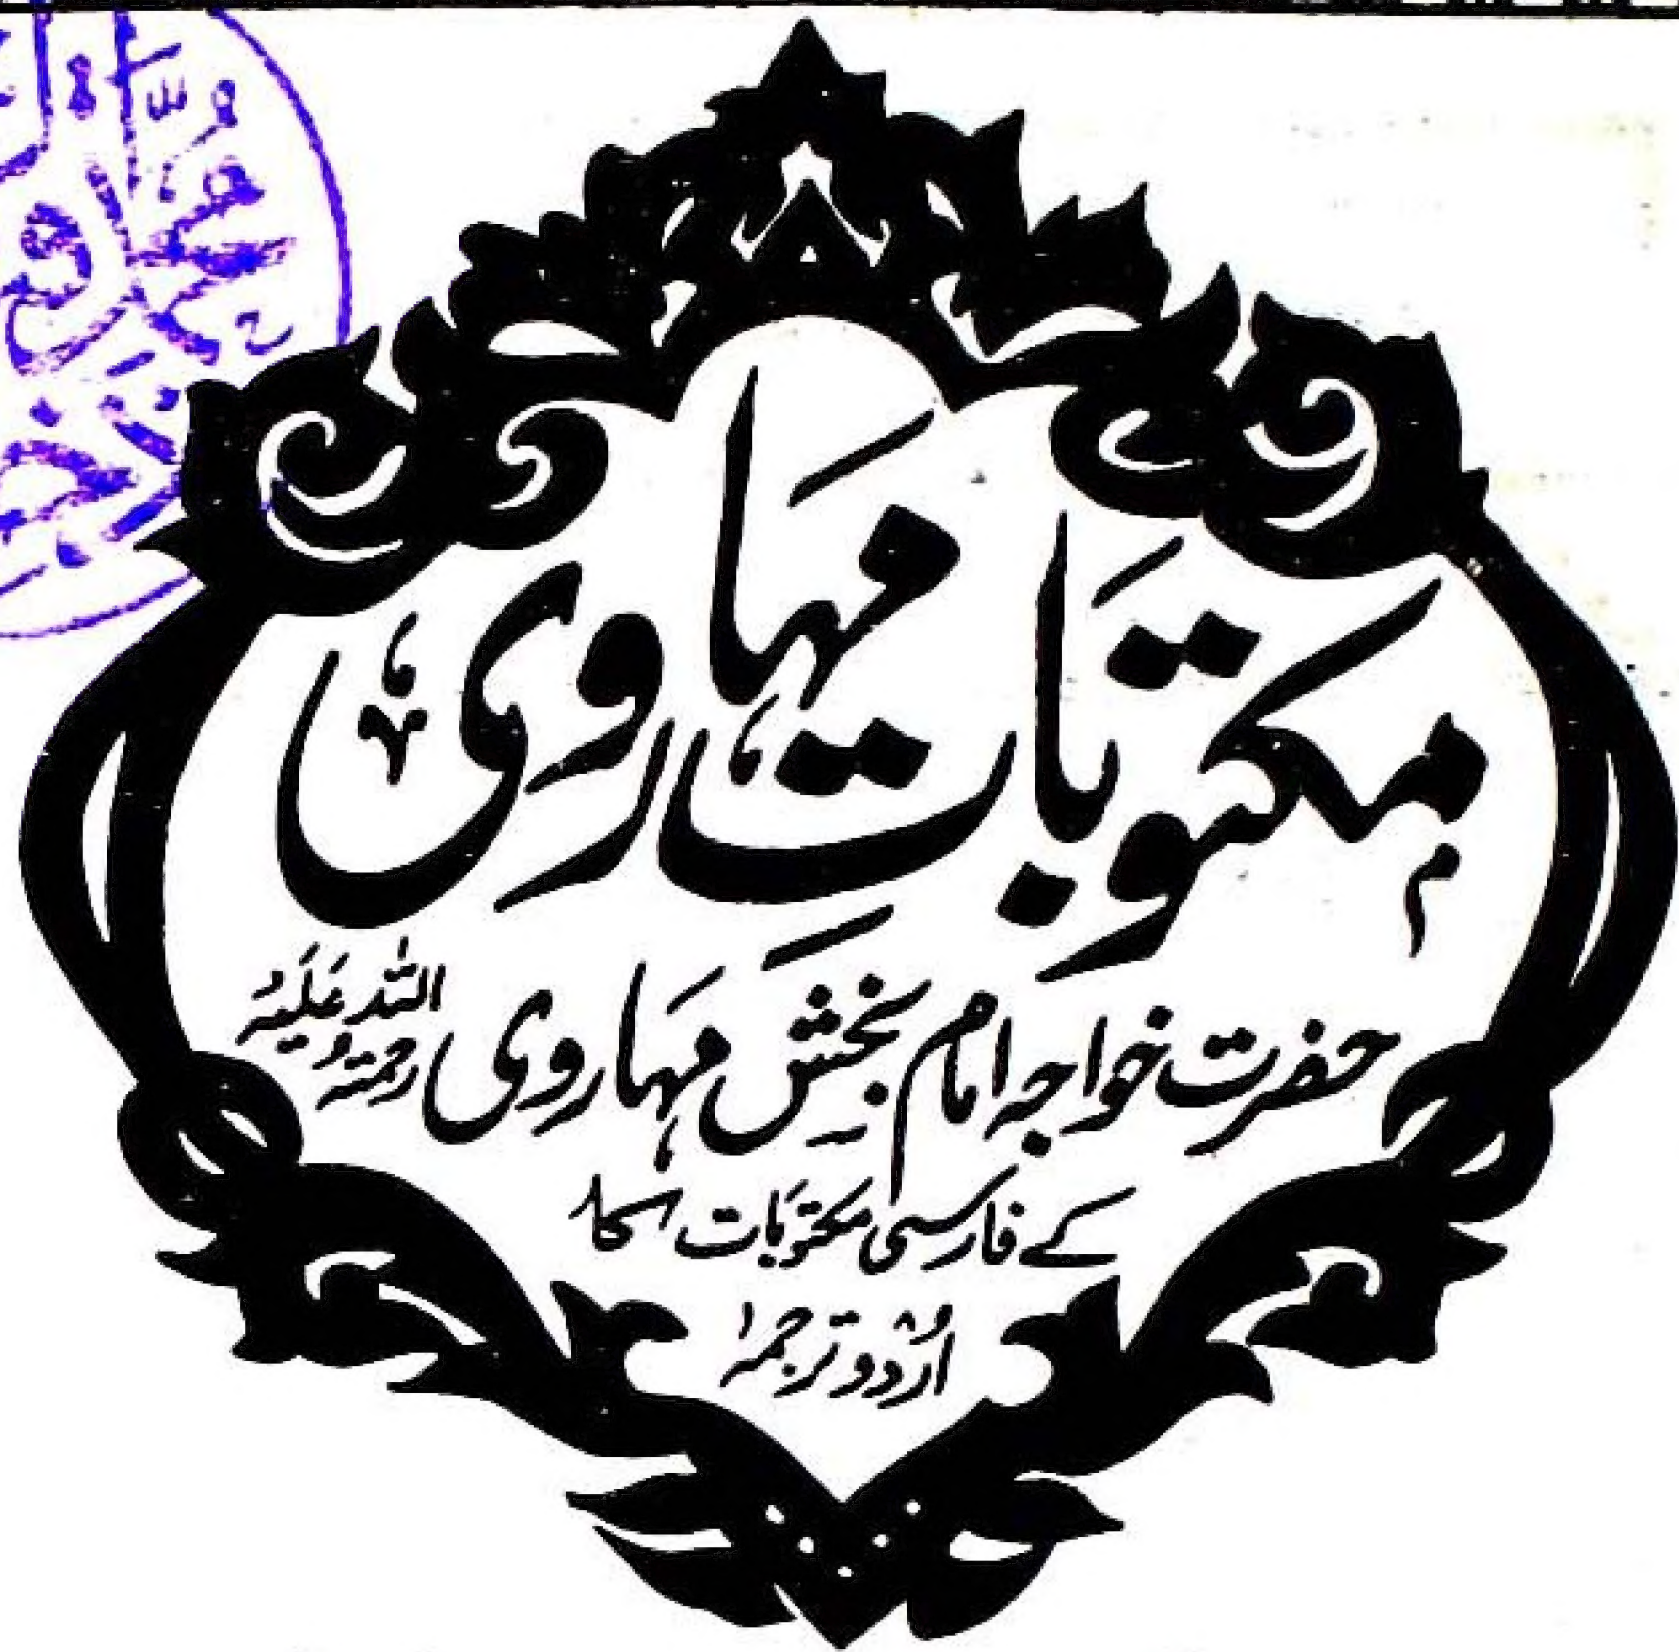 مکتوبات مہاروی
حضرت خواجہ امام بخش مہاروی رحمۃ اللہ علیہ
کے فارسی مکتوبات کا
اُردو ترجمہ